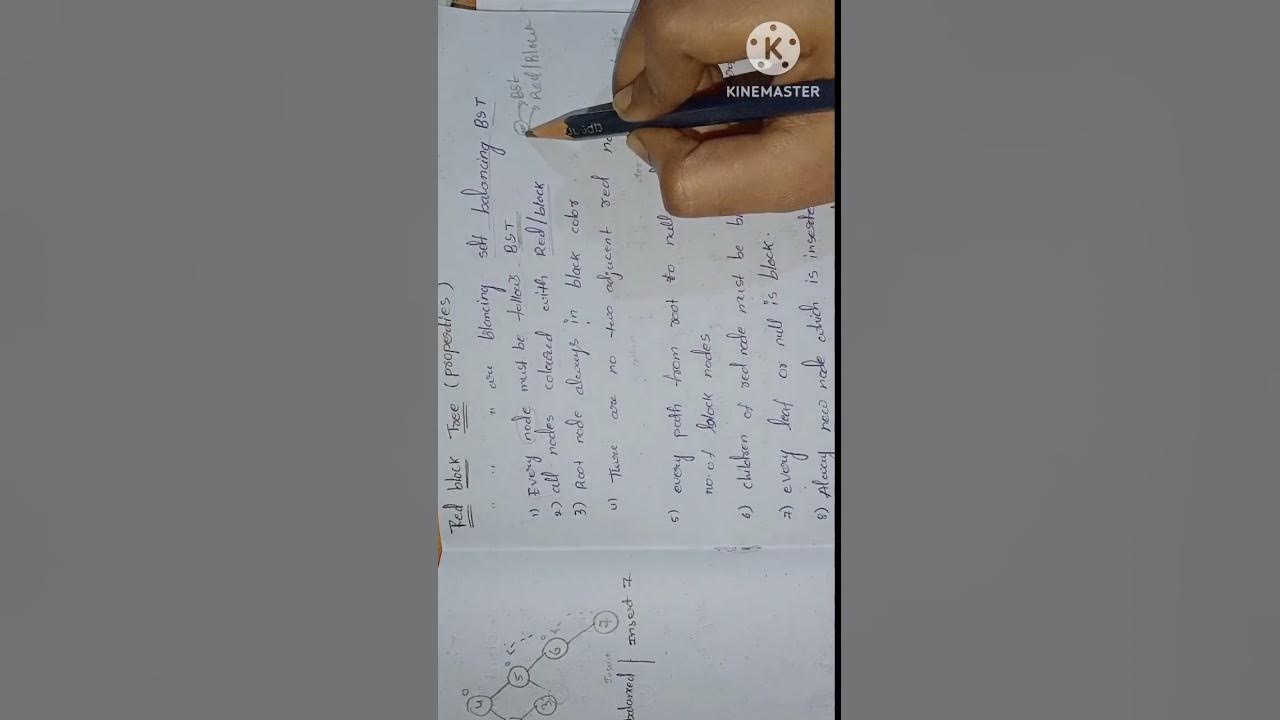 Red block Tree (properties)
" " " are blancing self balancing BST
1) Every node must be follows BST
2) all nodes colored with Red/block
3) Root node always in block color
4) There are no two adjacent red
5) every path from root to null
no of block nodes
6) children of red node must be
7) every leaf or null is block.
8) Alway new node which is inserte
BST
Red/Block
apsara
4
5
6
7
3
Insert 7
KINEMASTER